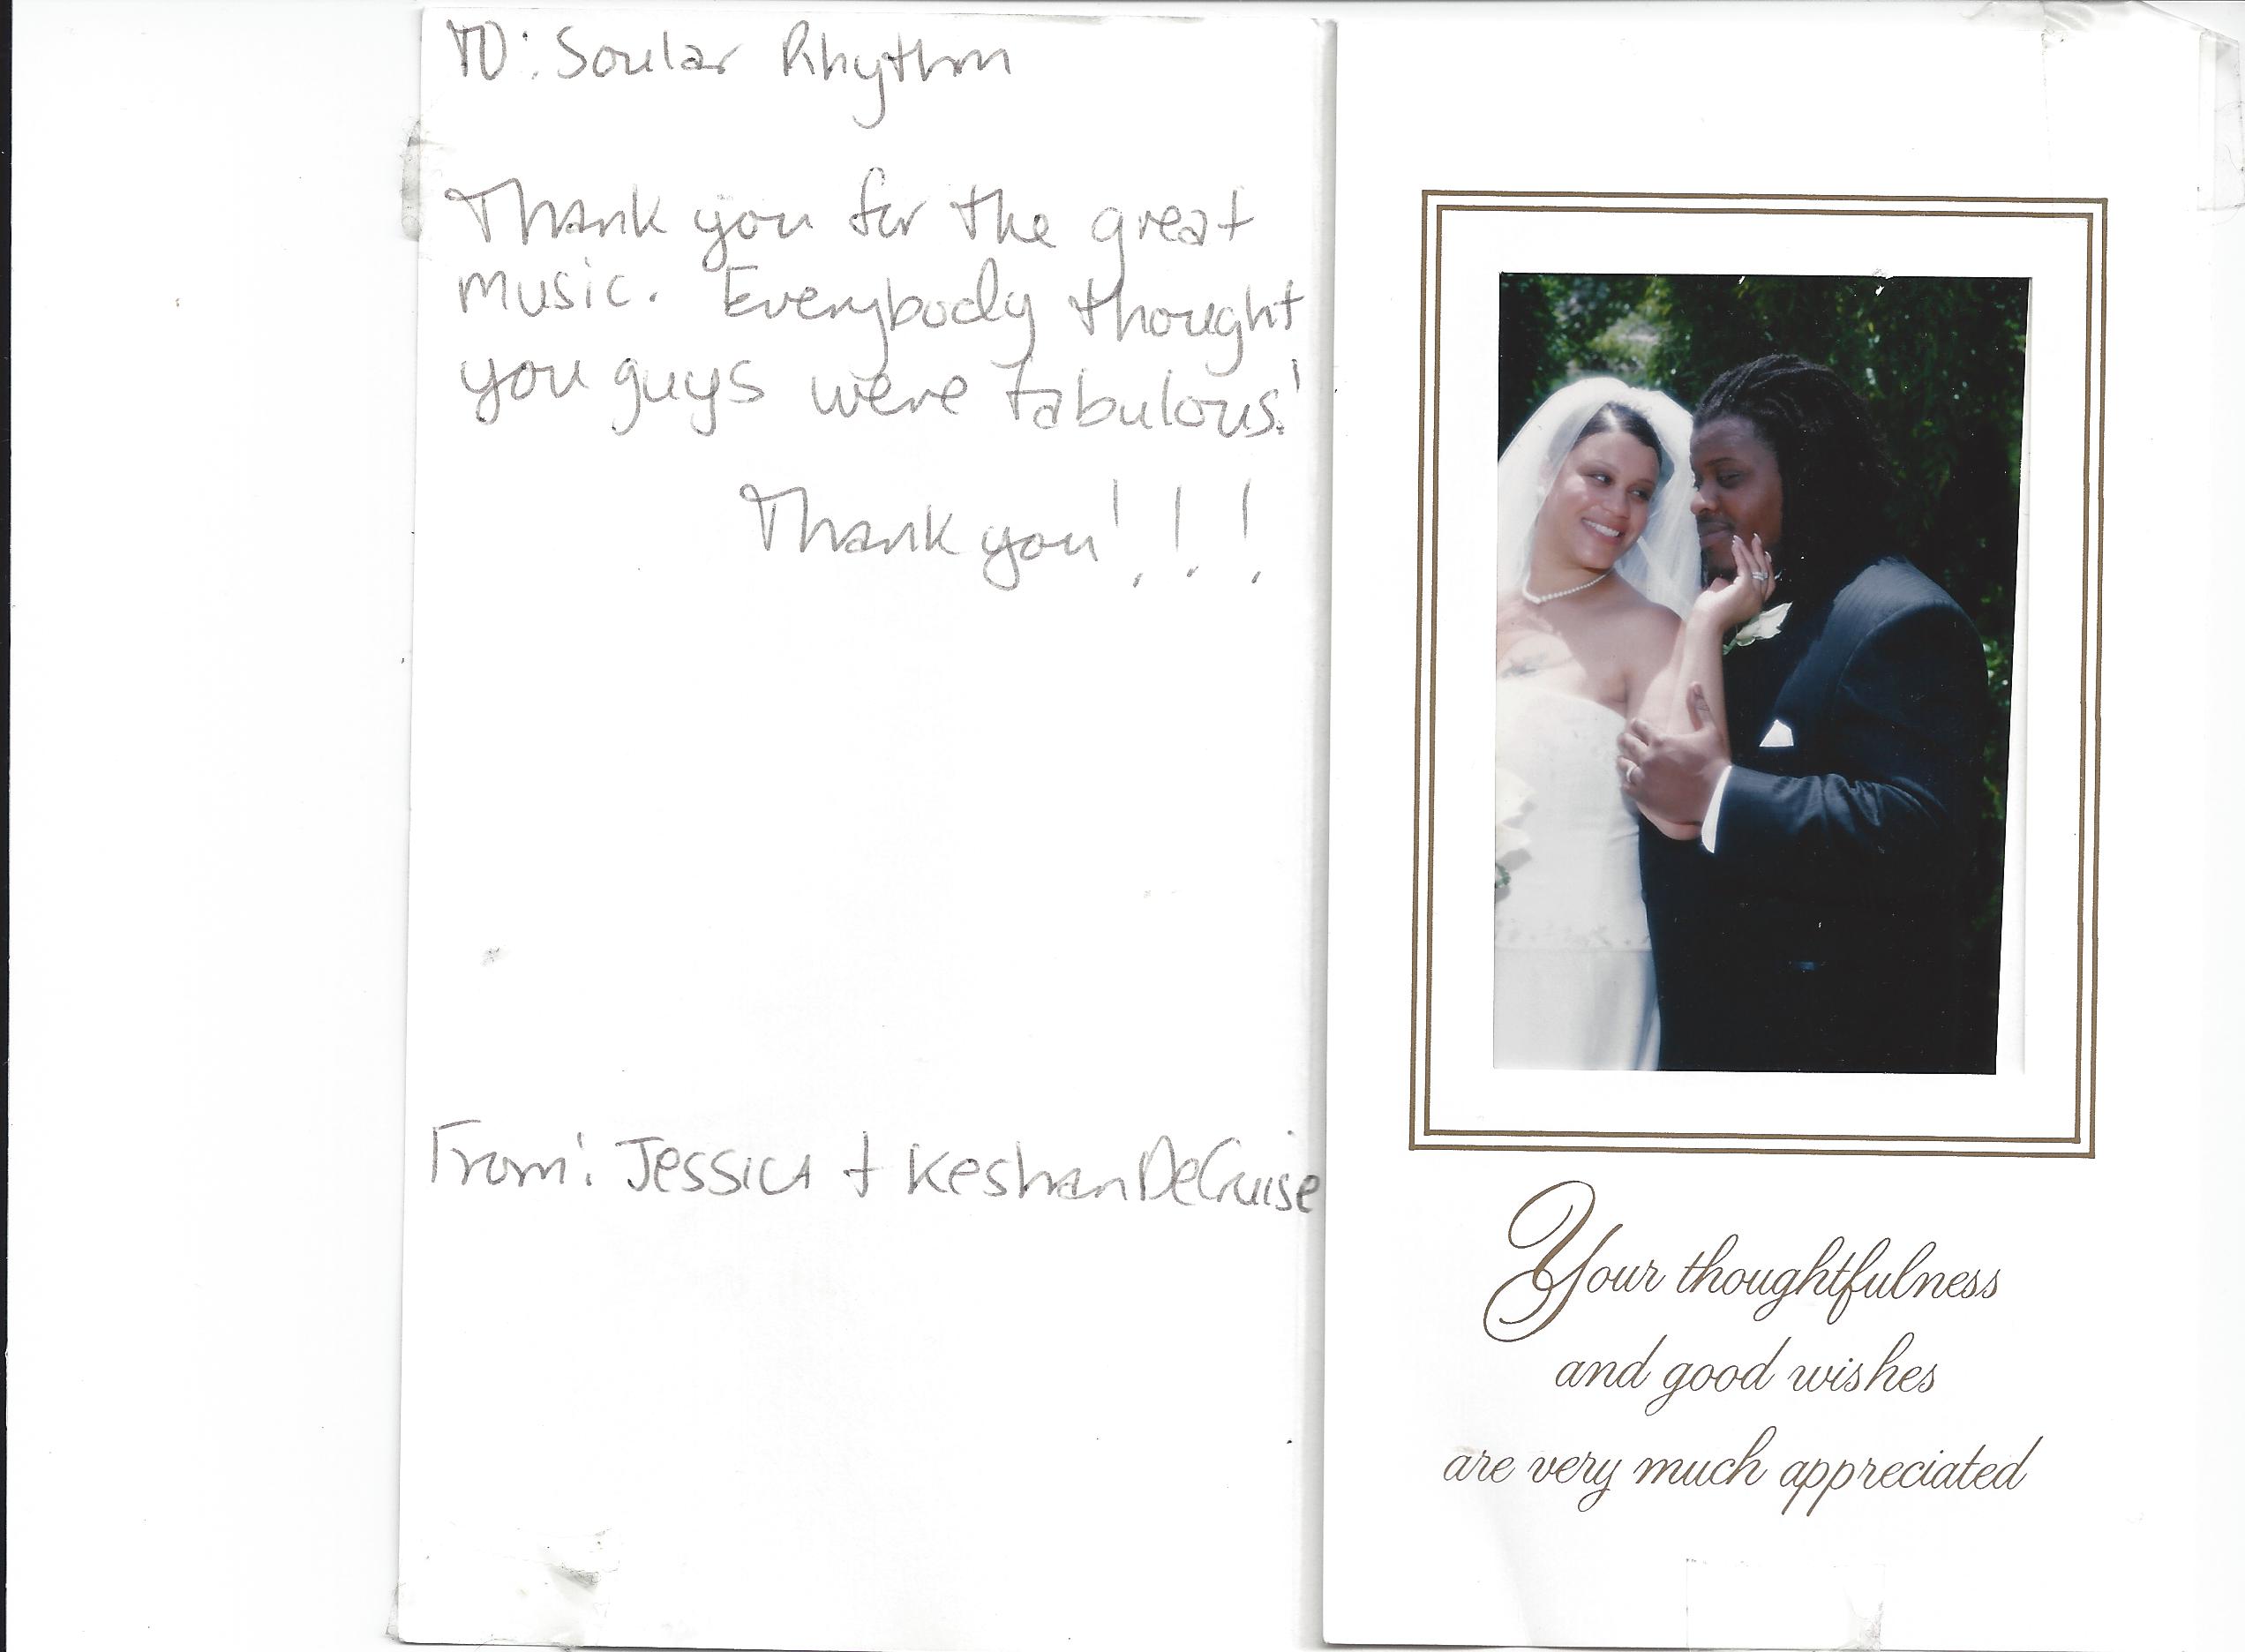 TO: Soular Rhythm
Thank you for the great
music. Everybody thought
you guys were fabulous!
Thank you!!!
From: Jessica + Keshan DeCruise
Your thoughtfulness
and good wishes
are very much appreciated